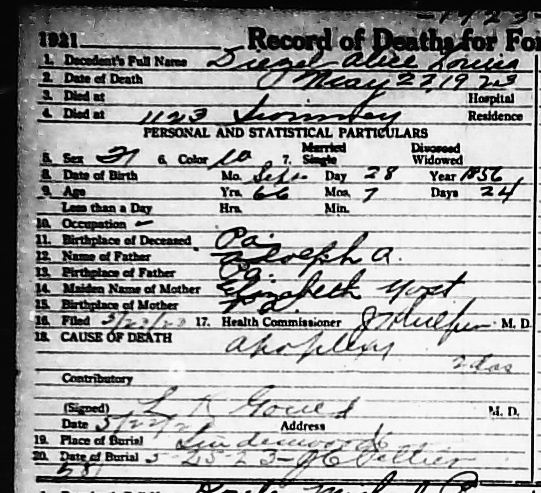 -1923-
1921 Record of Deaths for For
1. Decedent's Full Name Diegel Alice Louisa
2. Date of Death May 22, 1923
3. Died at Hospital
4. Died at 1123 Swinney Residence
PERSONAL AND STATISTICAL PARTICULARS
5. Sex 6. Color W 7. Married Single Divorced Widowed
8. Date of Birth Mo. Sept. Day 28 Year 1856
9. Age Yrs. 66 Mos. 7 Days 24
Less than a Day Hrs. Min.
10. Occupation –
11. Birthplace of Deceased Pa.
12. Name of Father Adolph A.
13. Birthplace of Father Pa.
14. Maiden Name of Mother Elizabeth Yost
15. Birthplace of Mother Pa.
16. Filed 5/22/23 17. Health Commissioner M. D.
18. CAUSE OF DEATH apoplexy
2 das
Contributory
(Signed) L K Gould M. D.
Date 5/22/2 Address
19. Place of Burial Lindenwood
20. Date of Burial 5-25-23- JC Peltier
581